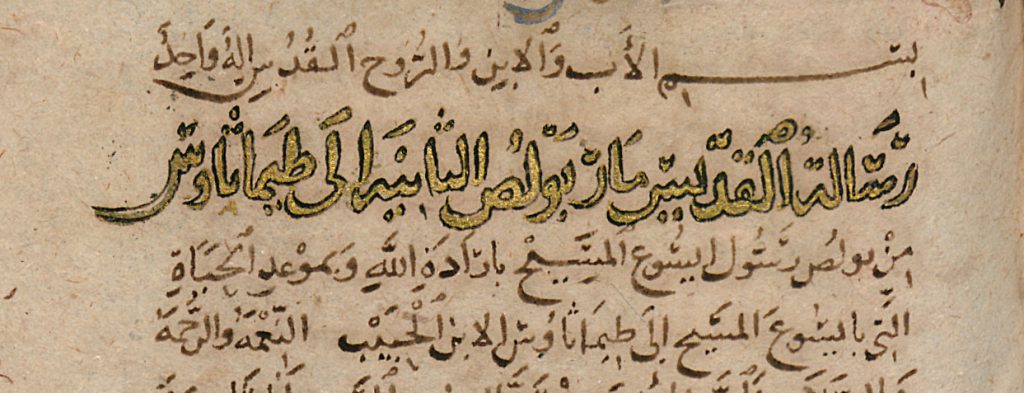 ابسم الأَب وَٱلابن وَالرُّوح ٱلقُدُس إِلهٌ وَاحِدٌ
رسَالة ٱلقدّيس مَار بَولُص الثانيَه الَى طيمَاثَاوس
مِنْ بولص رَسُول ايسُوع المَسِيح بارَادَةِ اللَّهِ وَبموْعدِ الحَيَاةِ
الَّتِي باايسُوعَ المسَيح إلَى طيمَاثاوُس الابن الحَبِيْب النّعْمَة والرَّحْمَة